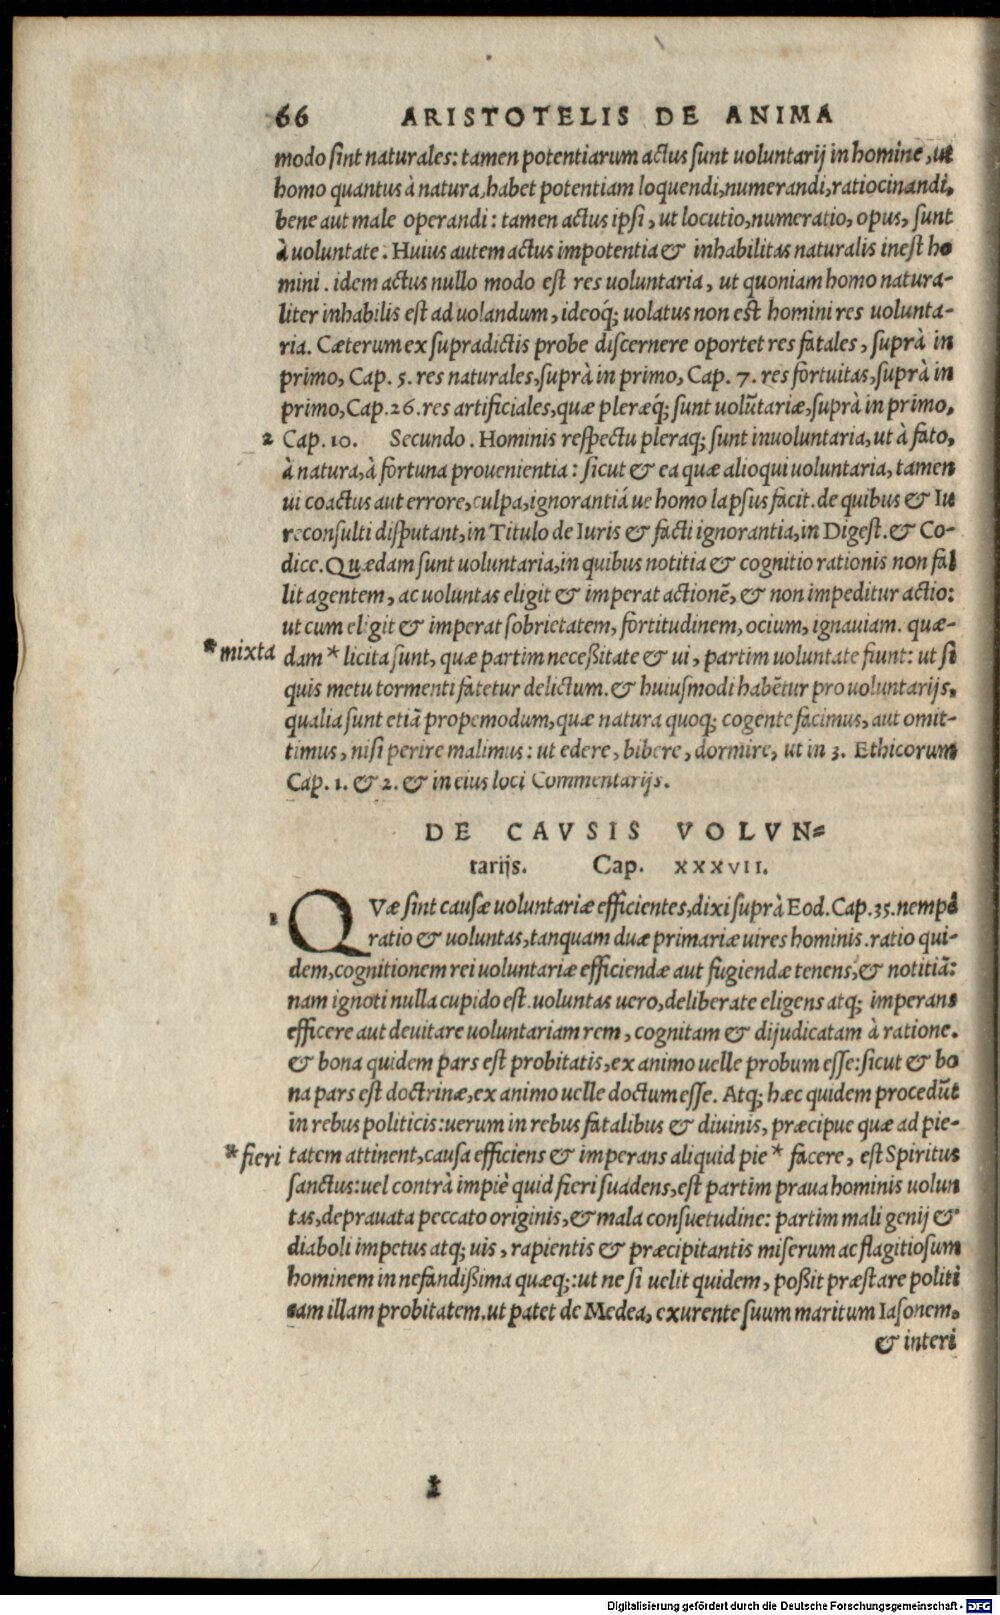 66 ARISTOTELIS DE ANIMA
modo sint naturales: tamen potentiarum actus sunt uoluntarij in homine, ut
homo quantus à natura, habet potentiam loquendi, numerandi, ratiocinandi,
bene aut male operandi: tamen actus ipsi, ut locutio, numeratio, opus, sunt
à uoluntate. Huius autem actus impotentia & inhabilitas naturalis inest ho
mini. idem actus nullo modo est res uoluntaria, ut quoniam homo natura-
liter inhabilis est ad uolandum, ideoq́; uolatus non est homini res uolunta-
ria. Cæterum ex supradictis probe discernere oportet res fatales, suprà in
primo, Cap. 5. res naturales, suprà in primo, Cap. 7. res fortuitas, suprà in
primo, Cap. 26. res artificiales, quæ pleræq́; sunt uolūtariæ, suprà in primo,
2 Cap. 10. Secundo. Hominis respectu pleraq; sunt inuoluntaria, ut à fato,
à natura, à fortuna prouenientia: sicut & ea quæ alioqui uoluntaria, tamen
ui coactus aut errore, culpa, ignorantiá ue homo lapsus facit. de quibus & Iu
reconsulti disputant, in Titulo de Iuris & facti ignorantia, in Digest. & Co-
dice. Quædam sunt uoluntaria, in quibus notitia & cognitio rationis non fal
lit agentem, ac uoluntas eligit & imperat actionē, & non impeditur actio:
ut cum eligit & imperat sobrietatem, fortitudinem, ocium, ignauiam. quæ-
*mixta dam * licita sunt, quæ partim necessitate & ui, partim uoluntate fiunt: ut si
quis metu tormenti fatetur delictum. & huiusmodi habētur pro uoluntarijs,
qualia sunt etiā propemodum, quæ natura quoq; cogente facimus, aut omit-
timus, nisi perire malimus: ut edere, bibere, dormire, ut in 3. Ethicorum
Cap. 1. & 2. & in eius loci Commentarijs.
DE CAVSIS VOLVN=
tarijs. Cap. XXXVII.
1 QVæ sint causæ uoluntariæ efficientes, dixi suprà Eod. Cap. 35. nempe
ratio & uoluntas, tanquam duæ primariæ uires hominis. ratio qui-
dem, cognitionem rei uoluntariæ efficiendæ aut fugiendæ tenens, & notitiā:
nam ignoti nulla cupido est. uoluntas uero, deliberate eligens atq; imperans
efficere aut deuitare uoluntariam rem, cognitam & dijudicatam à ratione.
& bona quidem pars est probitatis, ex animo uelle probum esse: sicut & bo
na pars est doctrinæ, ex animo uelle doctum esse. Atq; hæc quidem procedūt
in rebus politicis: uerum in rebus fatalibus & diuinis, præcipue quæ ad pie-
*fieri tatem attinent, causa efficiens & imperans aliquid pie * facere, est Spiritus
sanctus: uel contrà impiè quid fieri suadens, est partim praua hominis uolun
tas, deprauata peccato originis, & mala consuetudine: partim mali genij &
diaboli impetus atq; uis, rapientis & præcipitantis miserum ac flagitiosum
hominem in nefandissima quæq;: ut ne si uelit quidem, possit præstare politi
cam illam probitatem. ut patet de Medea, exurente suum maritum Iasonem,
& interi
Digitalisierung gefördert durch die Deutsche Forschungsgemeinschaft - DFG